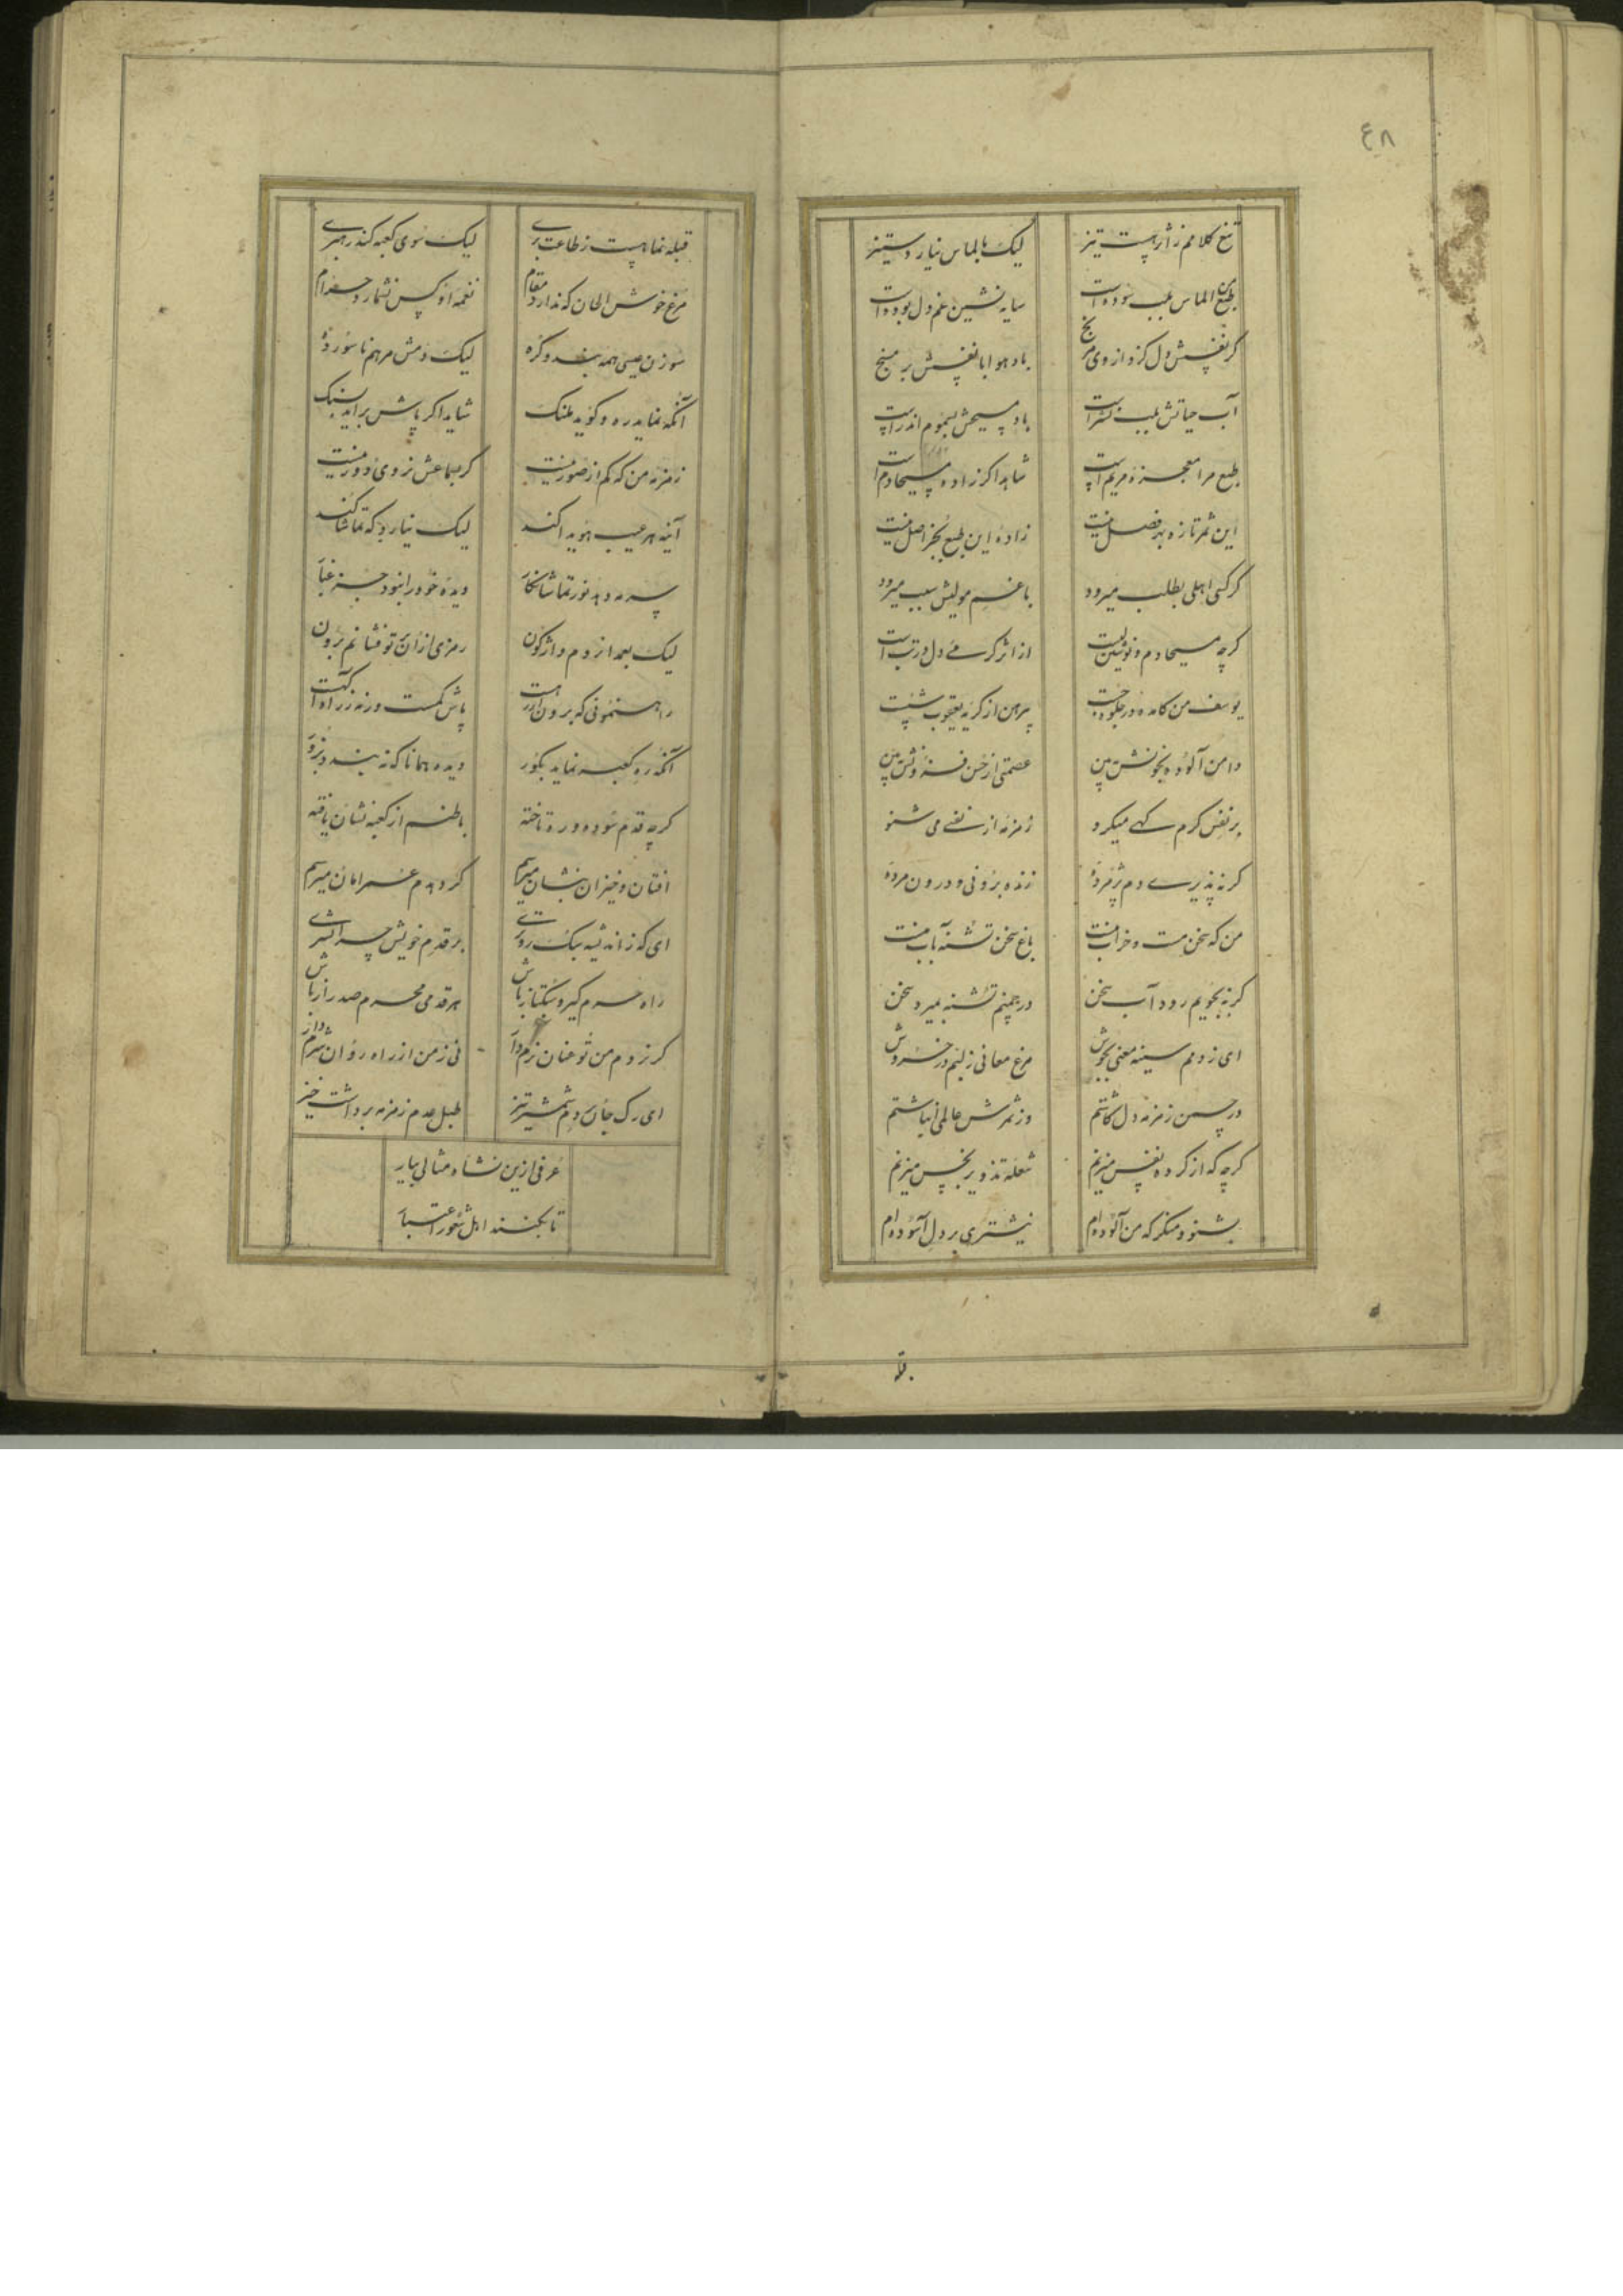 ۴۸
تیغ کلامم ز اثر هست تیز لیک بالماس نیارد ستیز
طبع الماس بلب سوده است سایه نشین غم دل بوده است
گر نفسش دل گزد از وی مرنج باد هوا با نفسش بر مسنج
آب حیاتش بلب نشتر است باد مسیحش بسموم اندر است
طبع مرا معجزه مریم است شاید اگر زاده مسیحا دم است
این ثمر تازه بر فصل نیست زاده این طبع بجز اصل نیست
گر کسی اهلی بطلب میرود با غم مولیش سبب میرود
گرچه مسیحا دم و نوشین لبست از اثر گرمی دل در تب است
یوسف من کامده در جلوه جست پیرهن از گریه یعقوب شست
دامن آلوده بخونش ببین عصمتی از حسن فزونش ببین
بر نفس گرم کهی میگرو زمزمه از نفسی می شنو
گر نپذیری دم پژمرده زنده برونی و درون مرده
من که سخن مست و خراب منست باغ سخن تشنه آب منست
گر نه بجویم رود آب سخن در چمنم تشنه بمیرد سخن
ای ز دمم سینه معنی بجوش مرغ معانی ز لبم در خروش
در چمن زمزمه دل کاشتم وز ثمرش عالمی انباشتم
گرچه که از کرده نفس میزنم شعله تزویر بخس میزنم
بشنو و منگر که من آلوده ام نیشتری بر دل آسوده ام
قبله نما هست ز طاعت بری لیک سوی کعبه کند رهبری
مرغ خوش الحان که ندارد مقام نغمه او کس نشمارد حرام
سوزن عیسی همه بند و گره لیک دمش مرهم ناسور ده
آنکه نماید ره و گوید ملنگ شاید اگر پاش برآید بسنگ
زمزمه من که کم از صور نیست گر سماعش نروی دور نیست
آینه هر عیب هویدا کند لیک نیارد که تماشا کند
سرمه دهد نور تماشا نگار دیده خود را نبود جز غبار
لیک بعد از دم واژگون رمزی از آن تو فشانم برون
راهنمونی که برون از رهست پاش گمست ورنه ز راه آگهست
آنکه ره کعبه نماید بکور دیده همانا که نه بیند ز دور
گرچه قدم سوده و ره تاخته باطنم از کعبه نشان یافته
افتان و خیزان بنشان میرسم گرد هم عمر امان میرسم
ای که ز اندیشه سبک روتری بر قدم خویش چرا اشتری
راه حرم گیر و سبکتاز باش هر قدمی محرم صد راز باش
گر ز دم من تو عنان نرم دار نی ز من از راه روان شرم دار
ای رگ جان دم شمشیر تیز طبل عدم زمزمه برداشت خیز
عرفی ازین نشاه مثالی بیار
تا بکنند اهل شعور اعتبار